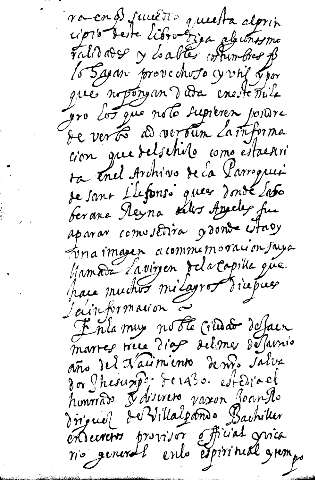 ra en q̃ sucedio questa al prin
cipio deste libro diga algunas mo
ralidades y loables costumbres p̃
lo hagan provechoso y util y por
que no pongan duda en este mila
gro los que no lo supieren pondre
de verbo ad verbum la informa
cion que del se hizo como esta escri
ta en el Archivo de la Parroquia
de sant Ilefonso ques donde la so
berana Reyna de los Angeles fue
a parar como se dira y donde esta oy
una imagen a commemoracion suya
llamada la virgen de la Capilla que
hace muchos milagros dice pues
la informacion
En la muy noble ciudad de Jaen
martes trece dias del mes de Junio
año del Nacimiento de nr̃o Salva
dor Jhesu de este dia el
honrrado y discreto varon Joan Ro
driguez de Villalpando Bachiller
en decretos provisor official y vica
rio general en lo espiritual y tempo